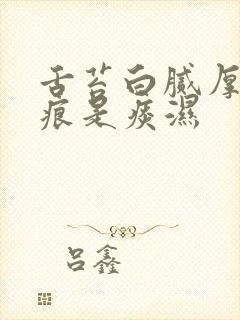 舌苔白腻厚
痕是痰湿
吕鑫